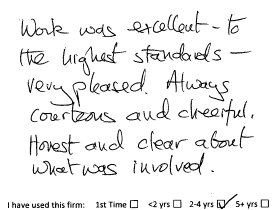 Work was excellent - to
the highest standards -
very pleased. Always
courteous and cheerful.
Honest and clear about
what was involved.
I have used this firm: 1st Time ☐ <2 yrs ☐ 2-4 yrs ☑ 5+ yrs ☐